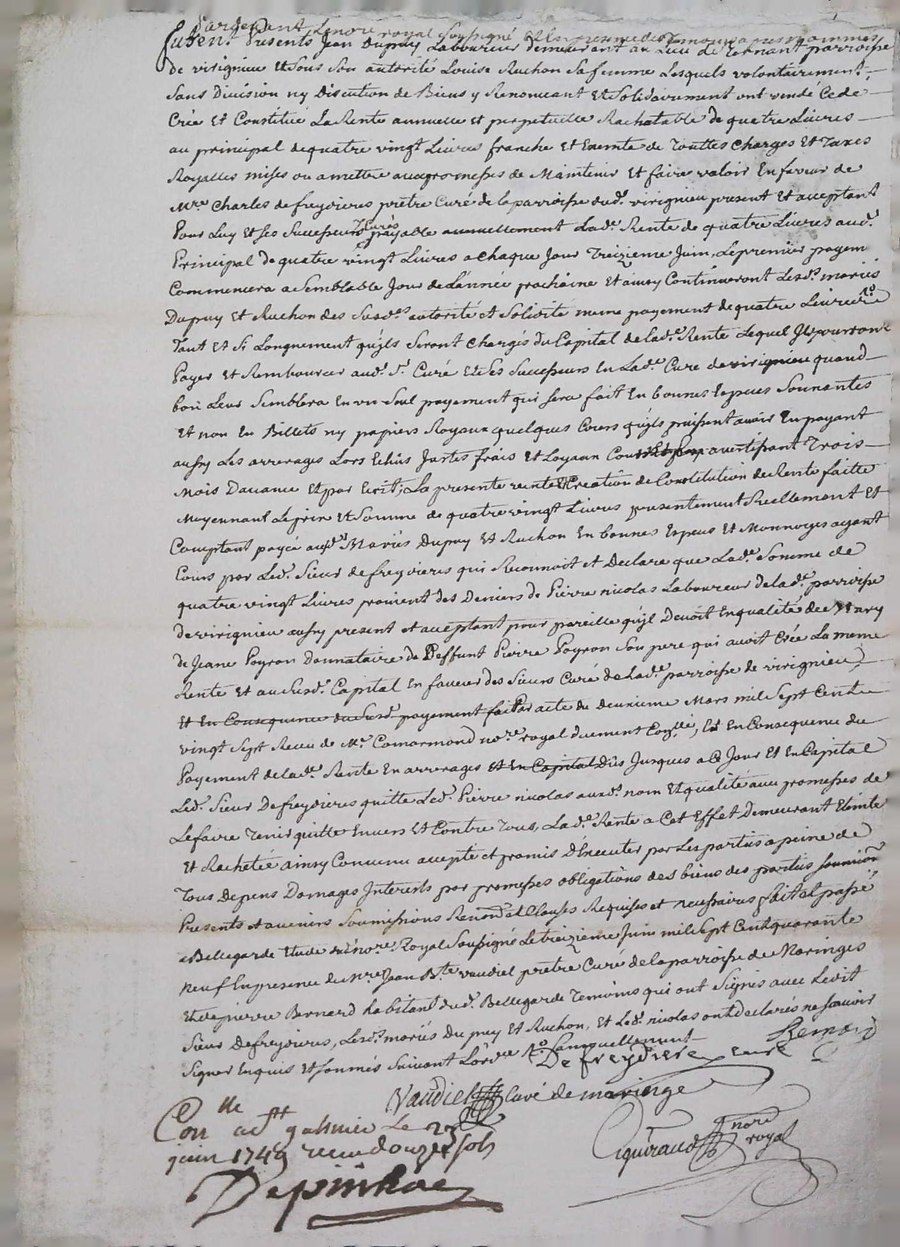 Pardevant Lenore royal soussigné Et les presence des temoins apres nommés
furent Presents Jean Dupuy Laboureur demeurant au Lieu de tornant parroisse
de virignieu et sous son autorité Louise Ruchon sa femme Lesquels volontairement
sans Division ny Discution de Biens y Renonceant Et solidairement ont vendé Cedé
Créé Et Constitué La Rente annuelle et perpetuelle Rachatable de quatre Livres
au principal de quatre vingt Livres franche et Exemte de Touttes Charges Et Taxes
Royalles mises ou a mettre aux promesses de Maintenir Et faire valoir En faveur de
Mre Charles defreydieres prêtre Curé de la parroisse dud. virignieu present et acceptant
Pour Luy et ses successeurs Curés payable annuellement Lade Rente de quatre Livres aud.
Principal de quatre vingt Livres a chaque Jour Treizieme Juin, Le premier payem
Commencera a semblable Jour de L'année prochaine Et ainsy Continueront Lesds. mariés
Dupuy Et Ruchon des susdes autorité et solidité meme payement de quatre Livres
Tant et si Longuement qu'jls seront chargés du Capital de lade Rente Lequel Jls pourront
Payer et Rembourcer aud. Sr. Curé Et ses successeurs En Lade Cure de virignieu quand
bon Leur semblera En vn seul payement qui sera fait En bonnes Especes sonnantes
Et non En Billets ny papiers Royaux quelques Cours qu'jls puissent avoir En payant
aussy Les arrerages Lors Echûs Justes frais Et Loyaux avertissant Trois
Mois Davance Et par Ecrit; La presente vente Et Creation de Constitution de Rente faitte
Moyennant Le prix Et somme de quatre vingt Livres presentement Reellement Et
Comptant payée auxds Mariés Dupuy Et Ruchon En bonnes Especes Et Monnoyes ayant
Cours par Led. Sieur defreydieres qui Reconnoit et Declare que Lade somme de
quatre vingt Livres provient des Deniers de Pierre nicolas Laboureur de lade parroisse
de virignieu aussy present et acceptant pour pareille qu'jl Devoit En qualité de Mary
de Jeane Poyron Donnataire de Deffunt Pierre Poyron son pere qui avoit Créé La meme
Rente Et au susd. Capital En faveur des Sieurs Curé de lade parroisse de virignieu
Et En Consequence du susd. payement fait Par acte du deuxieme Mars mil sept Cents
vingt sept Receu de Me. Comarmond nore royal duement Conllé, Et En Consequence du
Payement de lade Rente En arrerages Et En Capital Dûs Jusques a ce Jour Et En Capital
Led. Sieur Defreydieres quitte Led. Pierre nicolas auxds. nom Et qualité avec promesses de
Le faire Tenir quitte Envers Et Contre Tous, Lade Rente a Cet Effet Demeurant Eteinte
Et Rachetée ainsy Convenu accepté et promis D'Executer par Les parties a peine de
Tous Depens Domages Interests par promesses obligations des biens des parties
Presents et avenirs soumissions Renonons et Clauses Requises et necessaires fait et passé
a Bellegarde Etude du nore Royal soussigné Le treizieme Juin mil sept Cent quarante
neuf En presence de Mre Jean Bte vaudiel prêtre Curé de la parroisse de Maringes
Et de pierre Bernard habitant dud. Bellegarde Temoins qui ont signés avec Ledit
Sieur Defreydieres, Lesds. mariés Dupuy et Ruchon, Et Led. nicolas ont declarés ne sçavoir
signer Enquis et sommés suivant Lordce Rle Lannuellement
Defreydiere curé
Vaudiel Curé de maringe
Conlle a St galmier Le
juin 1749 receu douze sols
Depinhac
Ciguiraud nore
royal